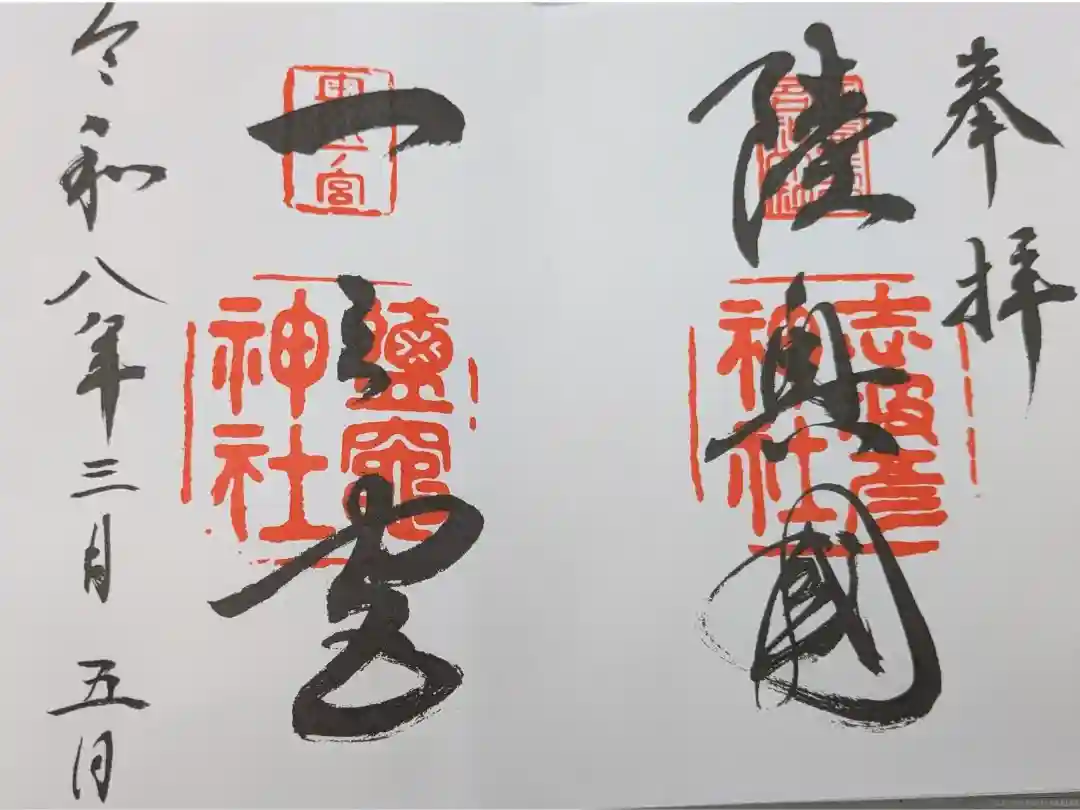 奉拝
陸奥國
志波彦
神社
一之宮
奥一ノ宮
鹽竈
神社
令和八年三月五日